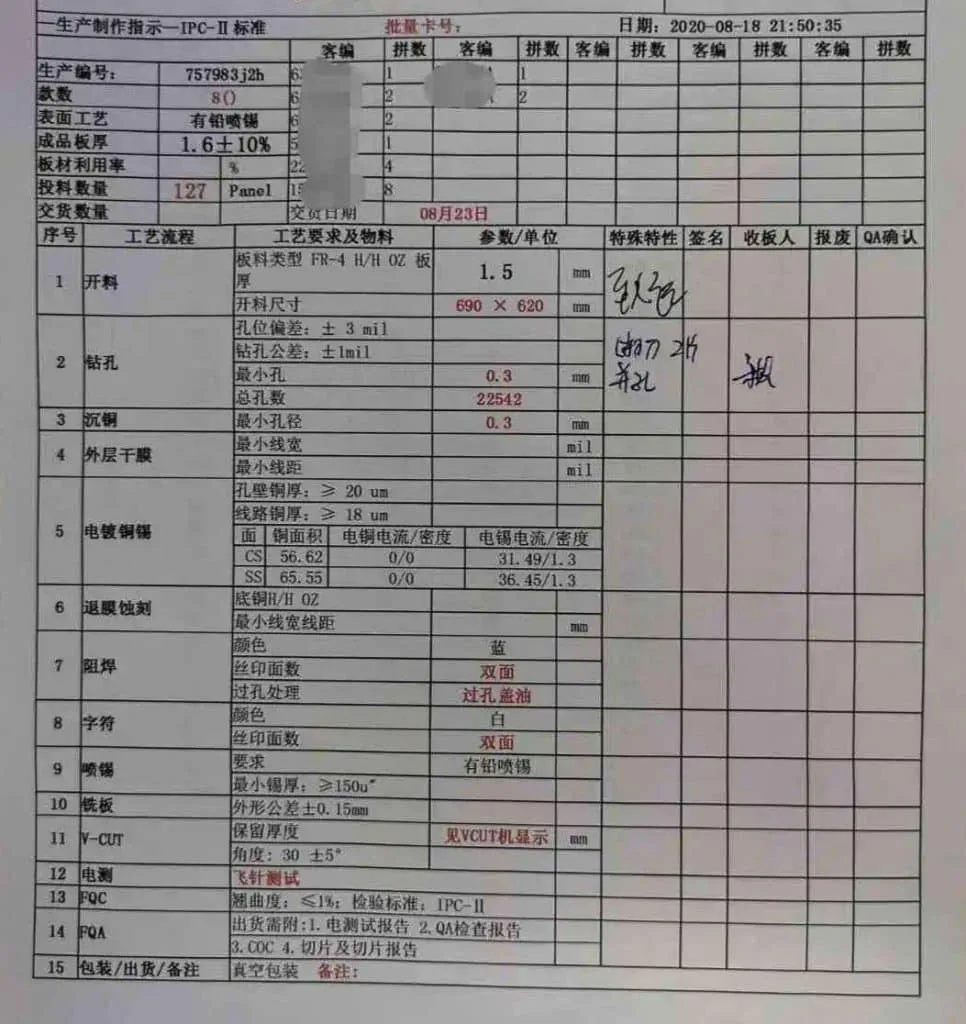 一生产制作指示—IPC-Ⅱ标准 批量卡号: 日期: 2020-08-18 21:50:35
客编 拼数 客编 拼数 客编 拼数 客编 拼数 客编 拼数
生产编号: 757983j2h 6 1 1
款数 8() 6 2 2
表面工艺 有铅喷锡 6 2
成品板厚 1.6±10% 5 1
板材利用率 % 22 4
投料数量 127 Panel 15 8
交货数量 交货日期 08月23日
序号 工艺流程 工艺要求及物料 参数/单位 特殊特性 签名 收板人 报废 QA确认
1 开料 板料类型 FR-4 H/H OZ 板厚 1.5 mm
开料尺寸 690 × 620 mm
2 钻孔 孔位偏差: ± 3 mil
钻孔公差: ±1mil
最小孔 0.3 mm
总孔数 22542
3 沉铜 最小孔径 0.3 mm
4 外层干膜 最小线宽 mil
最小线距 mil
5 电镀铜锡 孔壁铜厚: ≥ 20 um
线路铜厚: ≥ 18 um
面 铜面积 电铜电流/密度 电锡电流/密度
CS 56.62 0/0 31.49/1.3
SS 65.55 0/0 36.45/1.3
6 退膜蚀刻 底铜H/H OZ
最小线宽线距 mm
7 阻焊 颜色 蓝
丝印面数 双面
过孔处理 过孔盖油
8 字符 颜色 白
丝印面数 双面
9 喷锡 要求 有铅喷锡
最小锡厚: ≥150u"
10 铣板 外形公差±0.15mm
11 V-CUT 保留厚度 见VCUT机显示 mm
角度: 30 ±5°
12 电测 飞针测试
13 FQC 翘曲度: ≤1%; 检验标准: IPC-Ⅱ
14 FQA 出货需附:1.电测试报告 2.QA检查报告
3.COC 4.切片及切片报告
15 包装/出货/备注 真空包装 备注: